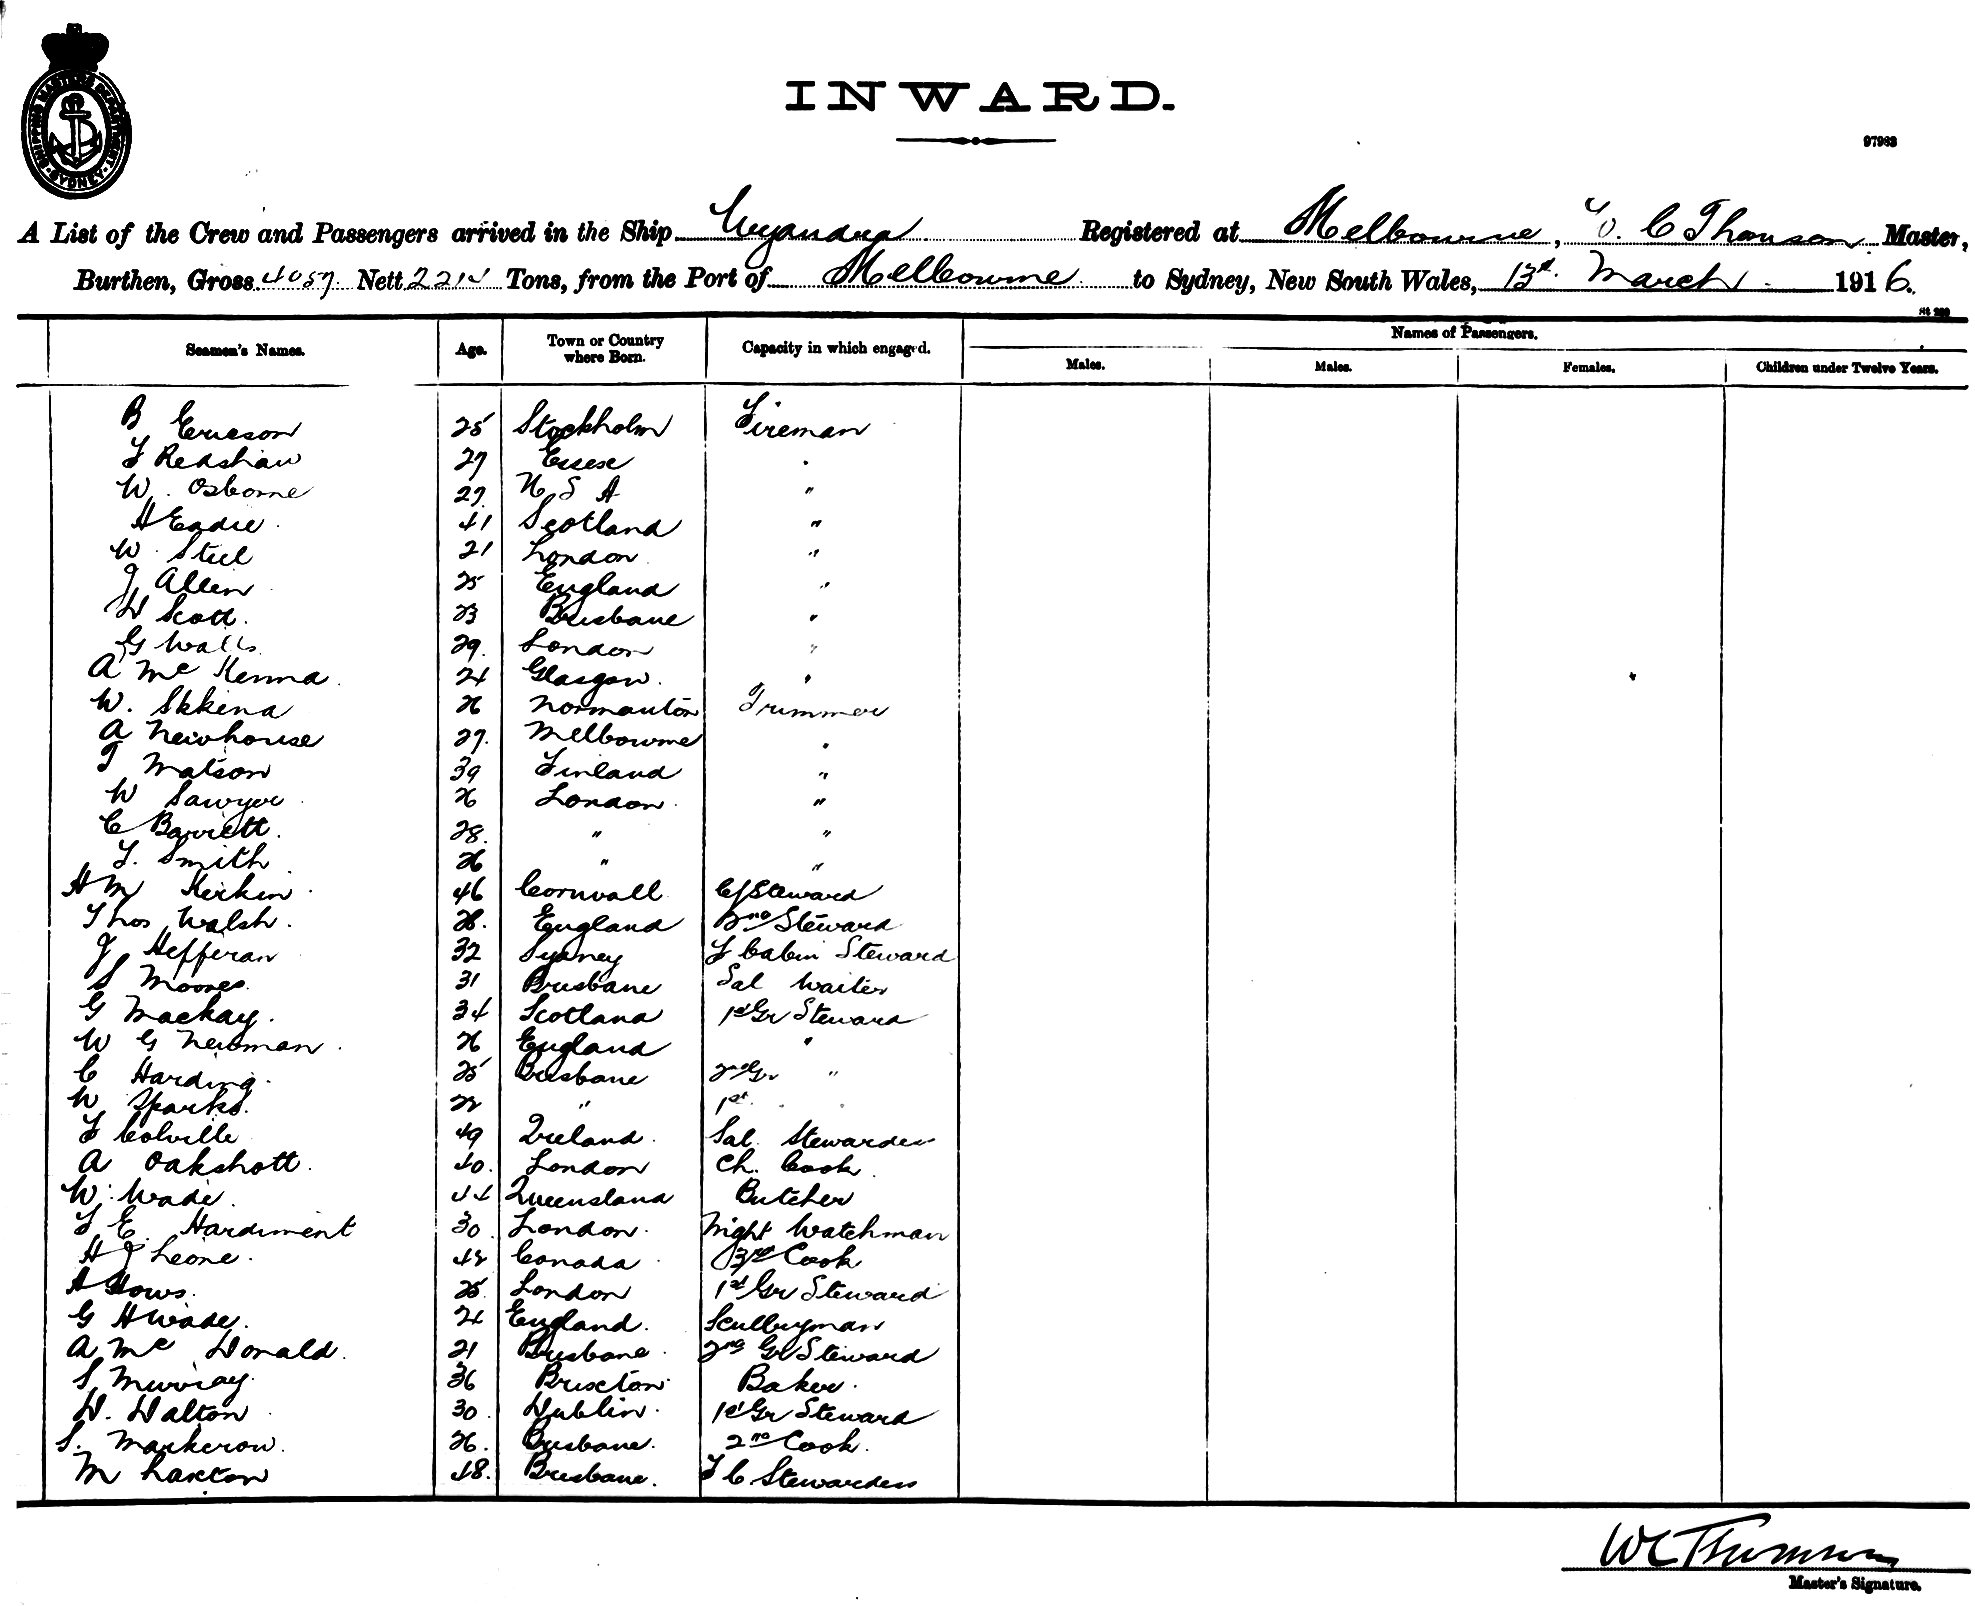 SHIPPING MASTERS DEPARTMENT
SYDNEY
INWARD.
97963
A List of the Crew and Passengers arrived in the Ship Wyandra Registered at Melbourne, W. C Thomson Master,
Burthen, Gross 4057 Nett 2214 Tons, from the Port of Melbourne to Sydney, New South Wales, 13th March 1916.
Names of Passengers.
Seamen's Names. Age. Town or Country where Born. Capacity in which engaged. Males. Males. Females. Children under Twelve Years.
B Ericson 25 Stockholm Fireman
F Redshaw 27 Essex "
W. Osborne 27 U S A "
H Eadie 41 Scotland "
W Steel 21 London "
J Allen 25 England "
D Scott. 23 Brisbane "
G Walls 29. London "
A McKenna 24 Glasgow. "
W. Skkena 26 Normanton Trimmer
A Newhouse 27. Melbourne "
T Matson 39 Finland "
W Sawyer 26 London "
C Barrett. 28. " "
F. Smith 26 " "
H M Kirkin 46 Cornwall Cf Steward
Thos Walsh. 28. England 2nd Steward
J Hefferan 32 Sydney F Cabin Steward
S Moores 31 Brisbane Sal Waiter
G Mackay. 34 Scotland 1st Gr Steward
W G Newman. 26 England "
C Harding. 25 Brisbane 2nd Gr "
W Sparks. 22 " 1st " "
F Colville 49 Ireland. Sal. Stewardess
A Oakshott. 40. London Ch. Cook
W. Wade. 44 Queensland Butcher
F E. Hardiment 30 London. Night Watchman
H J Leone. 42 Canada 3rd Cook
A Hows. 25. London 1st Gr Steward
G H Wade. 24 England. Sculleryman
A McDonald. 21 Brisbane. 2nd Gr Steward
S. Murray. 36 Brixton Baker.
D. Dalton 30. Dublin. 1st Gr Steward
S. Markerow. 26. Brisbane. 2nd Cook.
M Laxton 48. Brisbane. F C Stewardess
W C Thomson
Master's Signature.